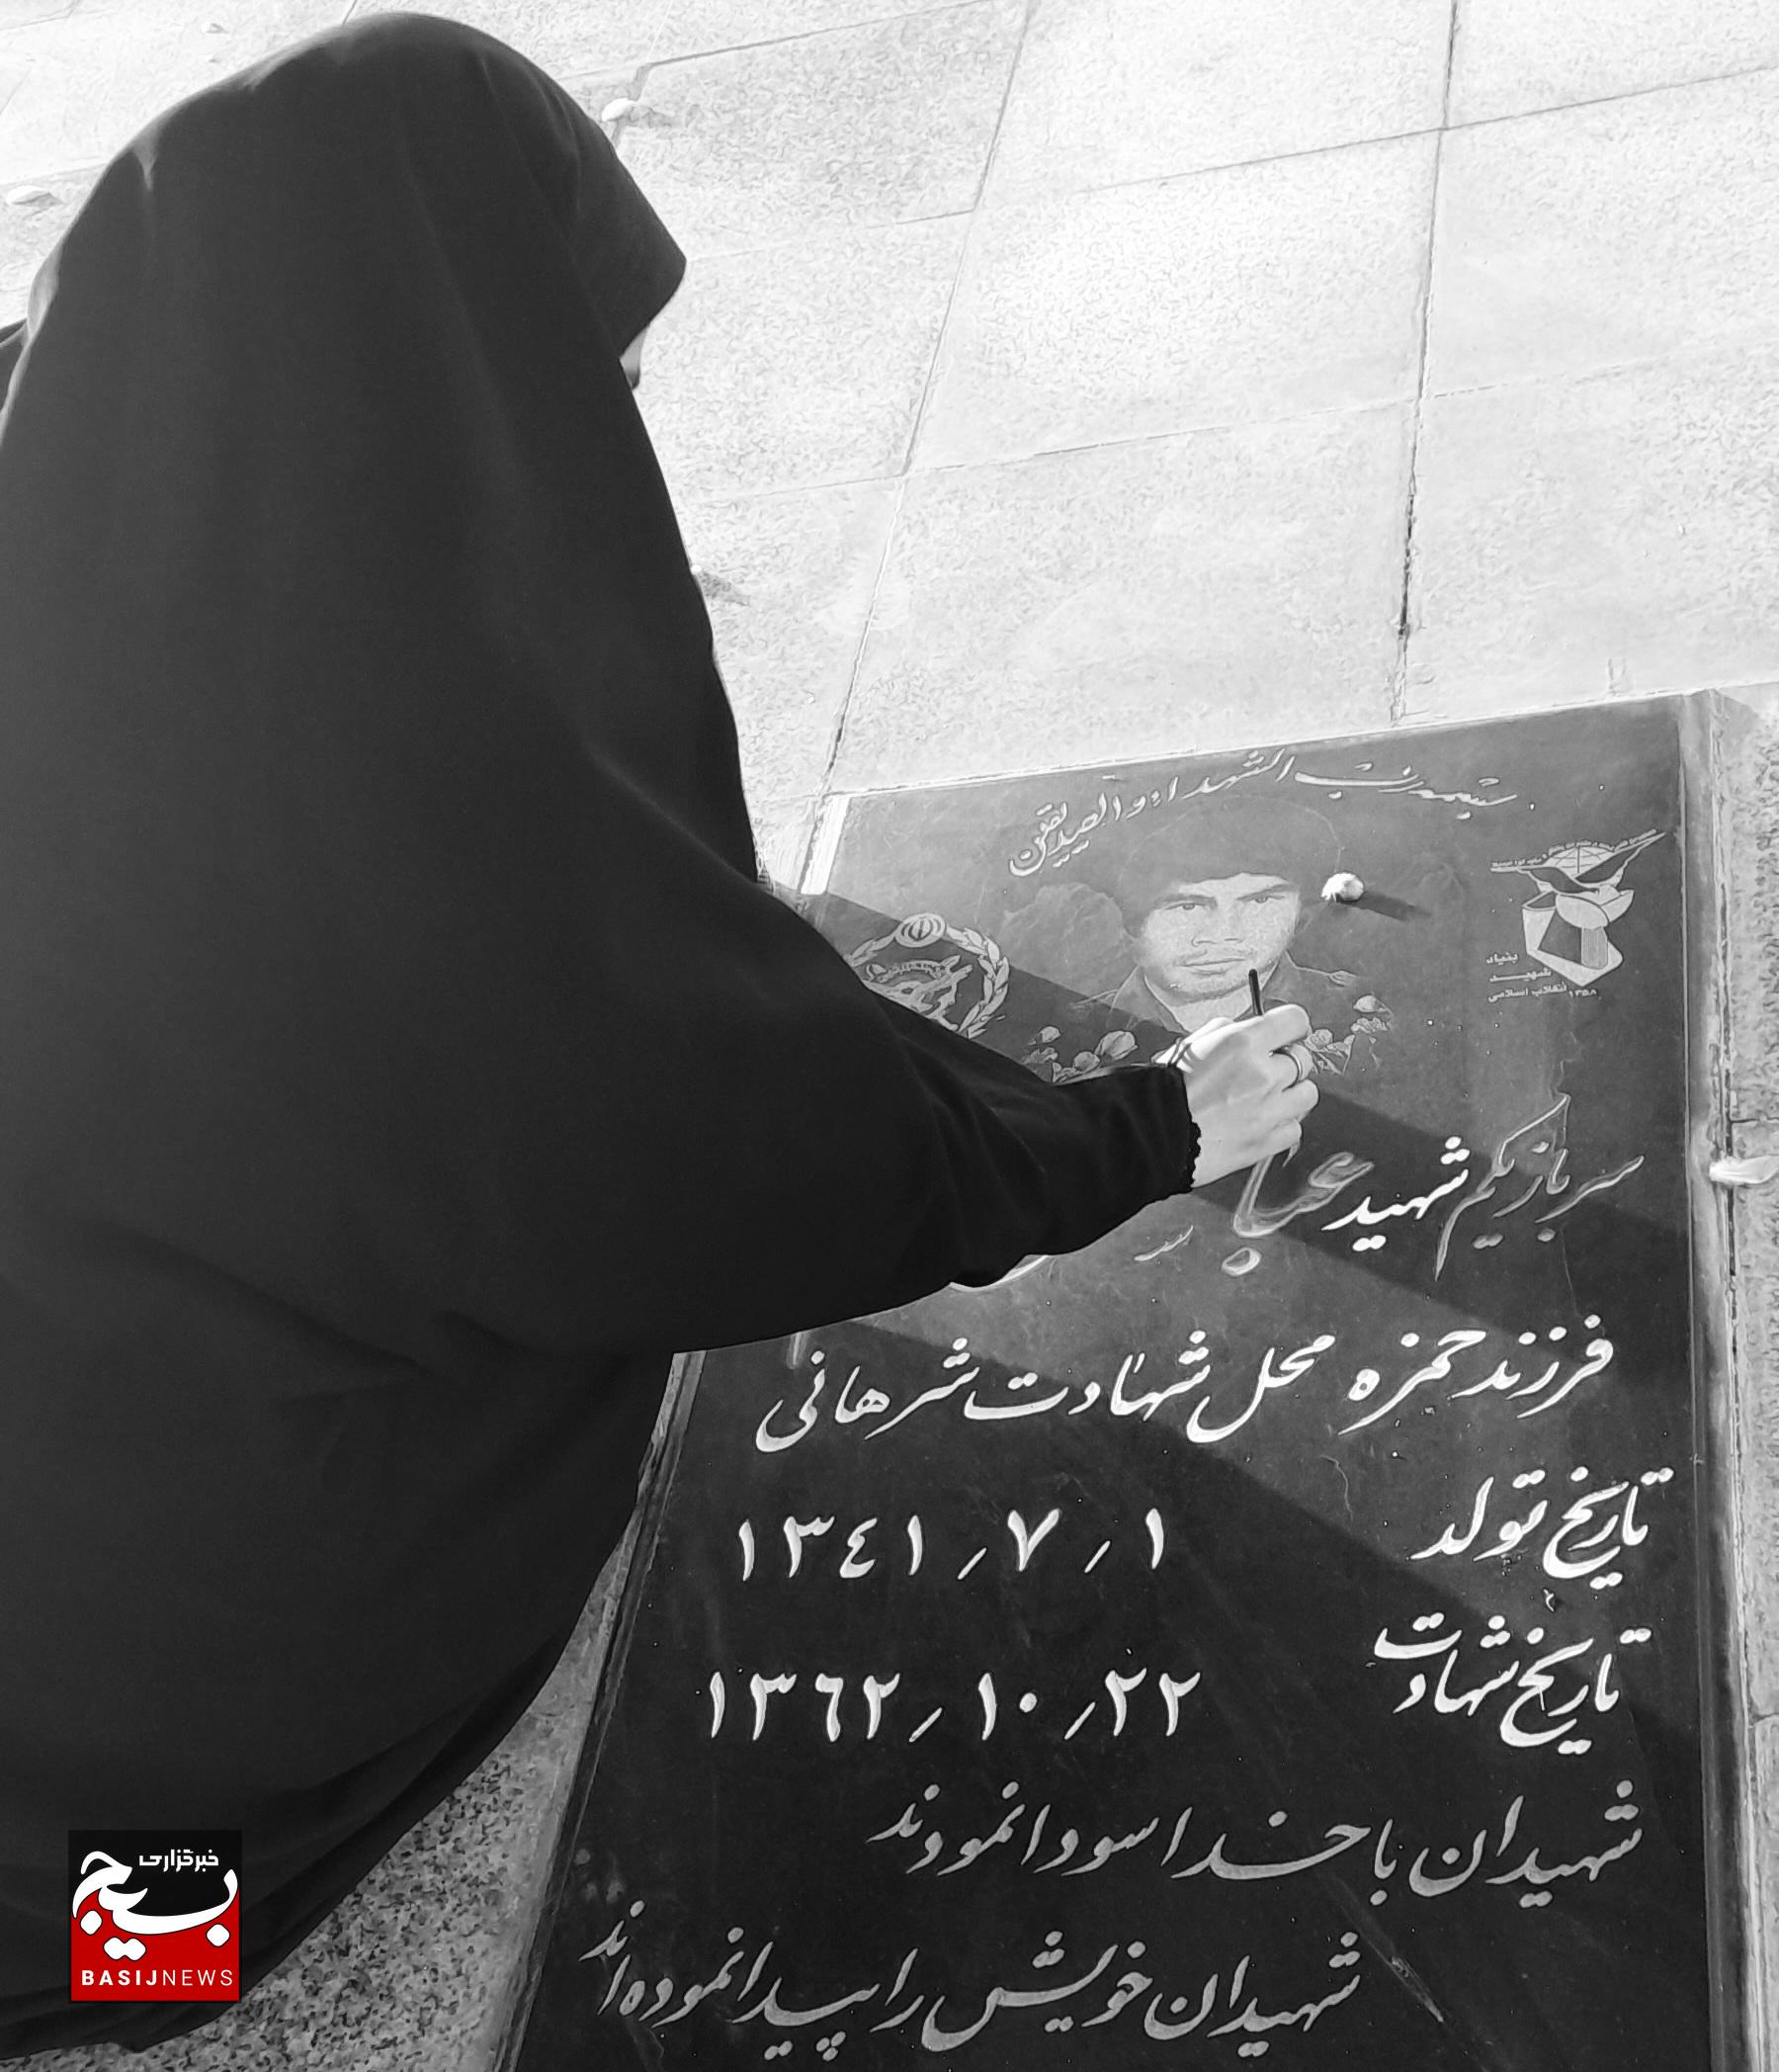 بسم رب الشهداء و الصدیقین
بنیاد
شهید
انقلاب اسلامی ۱۳۵۸
سرباز یکم شهید عبا
فرزند حمزه محل شهادت شرهانی
تاریخ تولد ۱٫۷٫۱۳٤۱
تاریخ شهادت ۲۲٫۱۰٫۱۳٦۲
شهیدان با خدا سودا نمودند
شهیدان خویش را پیدا نموده اند
خبرگزاری
بسیج
BASIJNEWS